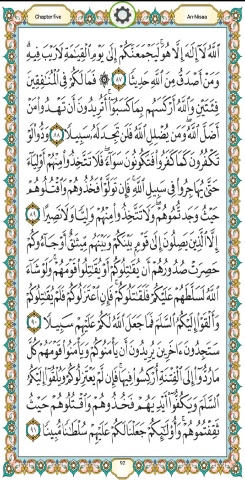 Chapter five An-Nisaa
اللَّهُ لَا إِلَٰهَ إِلَّا هُوَ لَيَجْمَعَنَّكُمْ إِلَىٰ يَوْمِ الْقِيَٰمَةِ لَا رَيْبَ فِيهِ
وَمَنْ أَصْدَقُ مِنَ اللَّهِ حَدِيثًا ٨٧ ۞ فَمَا لَكُمْ فِي الْمُنَٰفِقِينَ
فِئَتَيْنِ وَاللَّهُ أَرْكَسَهُم بِمَا كَسَبُوا أَتُرِيدُونَ أَن تَهْدُوا مَنْ
أَضَلَّ اللَّهُ وَمَن يُضْلِلِ اللَّهُ فَلَن تَجِدَ لَهُ سَبِيلًا ٨٨ وَدُّوا لَوْ
تَكْفُرُونَ كَمَا كَفَرُوا فَتَكُونُونَ سَوَاءً فَلَا تَتَّخِذُوا مِنْهُمْ أَوْلِيَاءَ
حَتَّىٰ يُهَاجِرُوا فِي سَبِيلِ اللَّهِ فَإِن تَوَلَّوْا فَخُذُوهُمْ وَاقْتُلُوهُمْ
حَيْثُ وَجَدتُّمُوهُمْ وَلَا تَتَّخِذُوا مِنْهُمْ وَلِيًّا وَلَا نَصِيرًا ٨٩
إِلَّا الَّذِينَ يَصِلُونَ إِلَىٰ قَوْمٍ بَيْنَكُمْ وَبَيْنَهُم مِّيثَٰقٌ أَوْ جَاءُوكُمْ
حَصِرَتْ صُدُورُهُمْ أَن يُقَٰتِلُوكُمْ أَوْ يُقَٰتِلُوا قَوْمَهُمْ وَلَوْ شَاءَ
اللَّهُ لَسَلَّطَهُمْ عَلَيْكُمْ فَلَقَٰتَلُوكُمْ فَإِنِ اعْتَزَلُوكُمْ فَلَمْ يُقَٰتِلُوكُمْ
وَأَلْقَوْا إِلَيْكُمُ السَّلَمَ فَمَا جَعَلَ اللَّهُ لَكُمْ عَلَيْهِمْ سَبِيلًا ٩٠
سَتَجِدُونَ ءَاخَرِينَ يُرِيدُونَ أَن يَأْمَنُوكُمْ وَيَأْمَنُوا قَوْمَهُمْ كُلَّ
مَا رُدُّوا إِلَى الْفِتْنَةِ أُرْكِسُوا فِيهَا فَإِن لَّمْ يَعْتَزِلُوكُمْ وَيُلْقُوا إِلَيْكُمُ
السَّلَمَ وَيَكُفُّوا أَيْدِيَهُمْ فَخُذُوهُمْ وَاقْتُلُوهُمْ حَيْثُ
ثَقِفْتُمُوهُمْ وَأُولَٰئِكُمْ جَعَلْنَا لَكُمْ عَلَيْهِمْ سُلْطَٰنًا مُّبِينًا ٩١
92